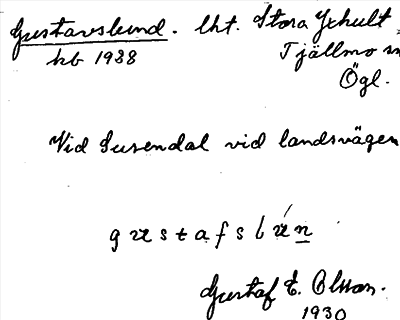 Gustavslund. lht. Stora Yxhult
hb 1938 Tjällmo sn
Ögl.
Vid Susendal vid landsvägen
gustafslu̇n
Gustaf E. Olsson.
1930